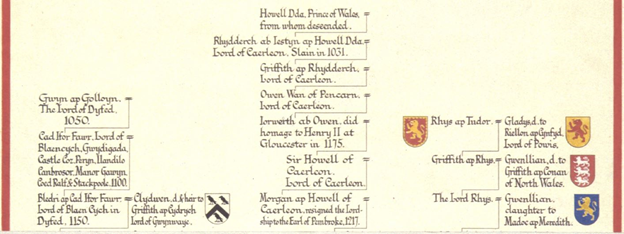 Howell Dda, Prince of Wales,
from whom descended. =
Rhydderch ab Iestyn ap Howell Dda. =
Lord of Caerleon. Slain in 1031.
Griffith ap Rhydderch. =
Lord of Caerleon.
Owen Wan of Pencarn. =
Lord of Caerleon.
Iorwerth ab Owen, did =
homage to Henry II at
Gloucester in 1175.
Sir Howell of =
Caerleon.
Lord of Caerleon.
Morgan ap Howell of =
Caerleon, resigned the Lord-
ship to the Earl of Pembroke, 1217.
Gwyn ap Golloyn. =
The Lord of Dyfed.
1050.
Cad Ifor Fawr, Lord of =
Blaencych, Gwydigada,
Castle Cor, Peryn, Llandilo
Cambrosor, Manor Gawyn,
Coed Ralf, & Stackpole. 1100.
Bledri ap Cad Ifor Fawr: =
Lord of Blaen Cych in
Dyfed. 1150.
Clydwen, d. & heir to
Griffith ap Cydrych
lord of Gwynwaye.
Rhys ap Tudor. =
Gladys, d. to
Riellon ap Gynfyd,
Lord of Powis.
Griffith ap Rhys. =
Gwenllian, d. to
Griffith ap Conan
of North Wales.
The Lord Rhys. =
Gwenllian,
daughter to
Madoc ap Meredith.